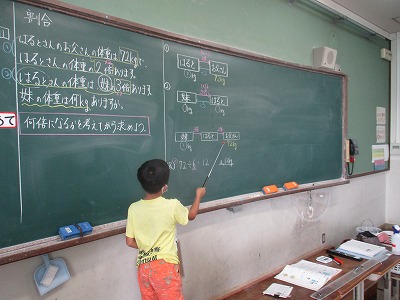 割合
①
はるとさんのお父さんの体重は72kgで、
はるとさんの体重の2倍あります。
②
はるとさんの体重は妹の3倍あります。
妹の体重は何kgありますか。
めあて
何倍になるかを考えてから求めよう。
①
はると
お父さん
72kg
②
妹
はると
妹
はると
お父さん
72kg
72÷6=12